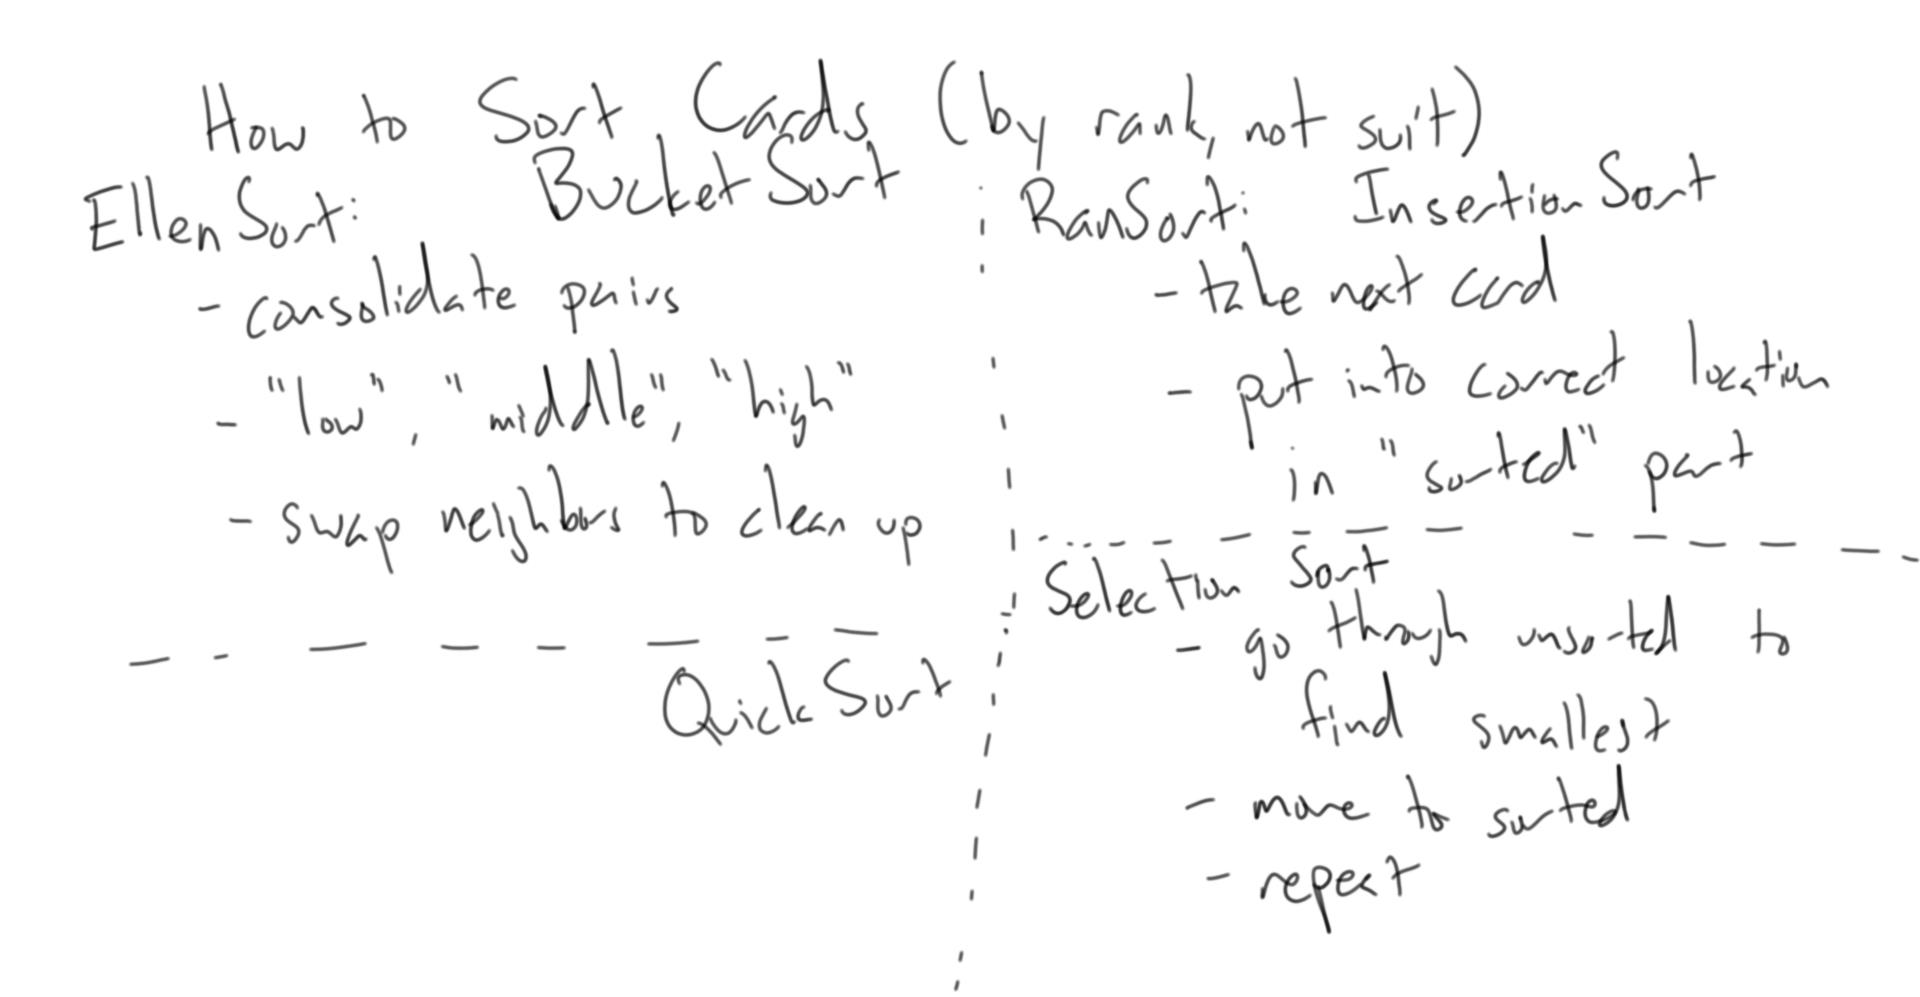 How to Sort Cards (by rank, not suit)
EllenSort: BucketSort
- consolidate pairs
- "low", "middle", "high"
- swap neighbors to clean up
QuickSort
RanSort: InsertionSort
- take next card
- put into correct location
in "sorted" part
Selection Sort
- go through unsorted to
find smallest
- move to sorted
- repeat